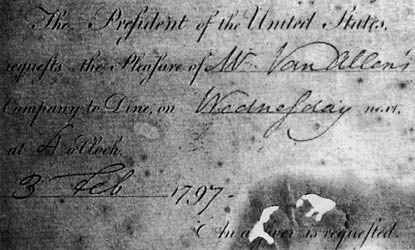 The Preſident of the United States,
requests the Pleaſure of Mr Van Allens
Company to Dine, on Wednesday next,
at 4 o'Clock.
3 Feb 1797.
An answer is requested.